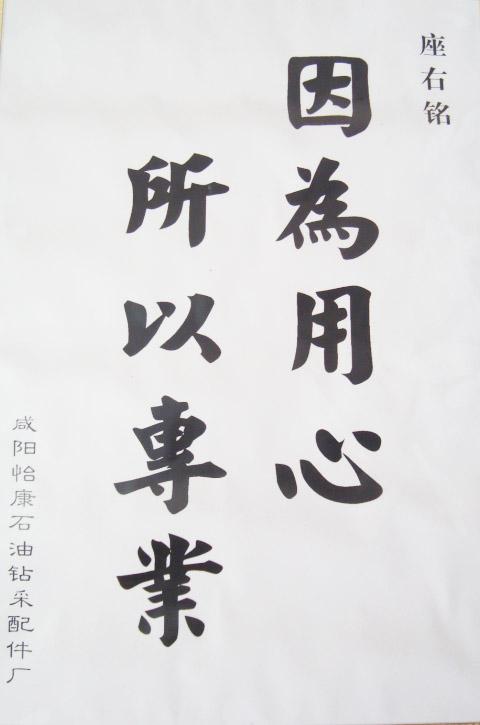 座右铭
因為用心
所以專業
咸阳怡康石油钻采配件厂